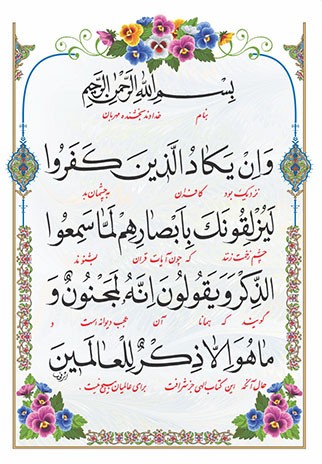 بِسْمِ اللهِ الرَّحْمٰنِ الرَّحِيمِ
بنام خداوند بخشنده مهربان
وَاِنْ يَكَادُ الَّذينَ كَفَرُوا
نزدیک بود کافران به چشمان بد
لَيُزْلِقُونَكَ بِاَبْصَارِهِمْ لَمَّا سَمِعُوا
چشم زخمت زنند که چون آیات قرآن بشنوند
الذِّكْرَ وَيَقُولُونَ اِنَّهُ لَمَجْنُونٌ وَ
گویند که همانا آن عجب دیوانه است و
مَا هُوَ اِلَّا ذِكْرٌ لِلْعَالَمينَ
حال آنکه این کتاب الهی جز شرافت برای عالمیان هیچ نیست .